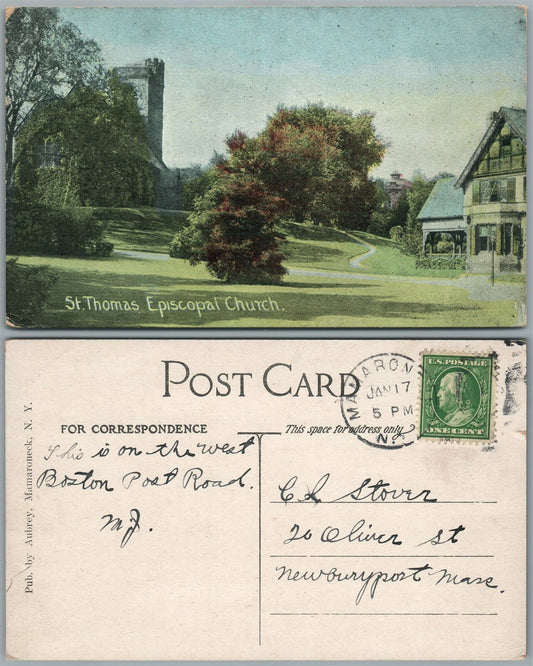 St. Thomas Episcopal Church.
POST CARD
FOR CORRESPONDENCE
This space for address only
MAMARONE
JAN 17
5 PM
N.
U.S. POSTAGE
ONE CENT
Pub. by Aubrey, Mamaroneck, N. Y.
This is on the West
Boston Post Road.
C L Stover
20 Oliver st
Newburyport Mass.